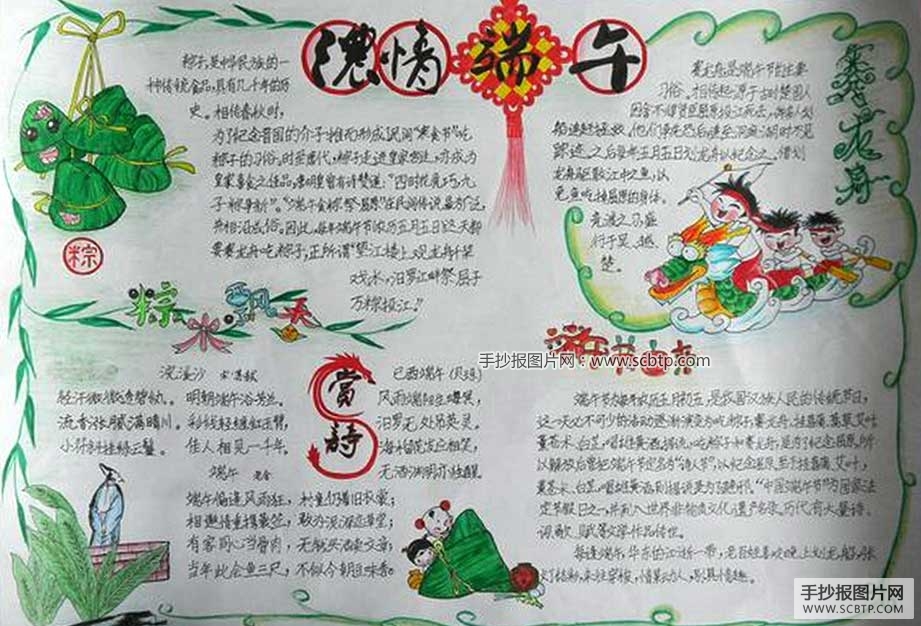 浓情端午
粽子是中华民族的一
种传统食品,具有几千年的历
史。相传春秋时,
为了纪念晋国的介子推而形成民间"寒食节"吃
粽子的习俗,时至唐代,粽子走进皇家宫廷,亦成为
皇家喜食之佳品,唐明皇曾有诗赞道:"四时花竞巧,九
子粽争新"。"端午食粽祭屈原"在民间传说最为广泛,
因此,每年端午节农历五月五日这天都
要赛龙舟吃粽子,正所谓"望江楼上观龙舟千桨
戏水,汨罗江畔祭屈子
万粽投江。"
粽
粽飘天
赛龙舟是端午节的主要
习俗。相传起源于古时楚国人
因舍不得贤臣屈原投江死去,许多人划
船追赶拯救。他们争先恐后追至洞庭湖时不见
踪迹,之后每年五月五日划龙舟以纪念之。借划
龙舟驱散江中之鱼,以
免鱼吃掉屈原的身体。
竞渡之习盛
行于吴、越、
楚。
浣溪沙
轻汗微微透碧纨。 明朝端午浴芳兰。
流香涨腻满晴川。 彩线轻缠红玉臂,
小符斜挂绿云鬟。 佳人相见一千年。
端午 老舍
端午偏逢风雨狂, 村童仍着旧衣裳;
相邀情重携蓑笠, 敢为泥深恋草堂;
有客同心当骨肉, 无钱买酒卖文章;
当年此会鱼三尺, 不似今朝豆味香。
诗
己酉端午(贝琼)
风雨端阳生晦冥,
汨罗无处吊英灵。
海榴花发应相笑,
无酒渊明亦独醒
手抄报图片网:www.scbtp.com
端午节为每年农历五月初五,是我国汉族人民的传统节日,
这一天必不可少的活动逐渐演变为吃粽子,赛龙舟,挂菖蒲、蒿草、艾叶,
薰苍术、白芷,喝雄黄酒。据说,吃粽子和赛龙舟,是为了纪念屈原,所
以解放后曾把端午节定名为"诗人节",以纪念屈原。至于挂菖蒲、艾叶,
薰苍术、白芷,喝雄黄酒,则据说是为了避邪。"中国端午节"为国家法
定节假日之一,并列入世界非物质文化遗产名录。历代有大量诗、
词、歌、赋等文学作品传世。
每逢端午,华东的江浙一带,老百姓喜欢晚上划龙船,张
灯结彩,来往穿梭,情景动人,别具情趣。
手抄报图片网
WWW.SCBTP.COM